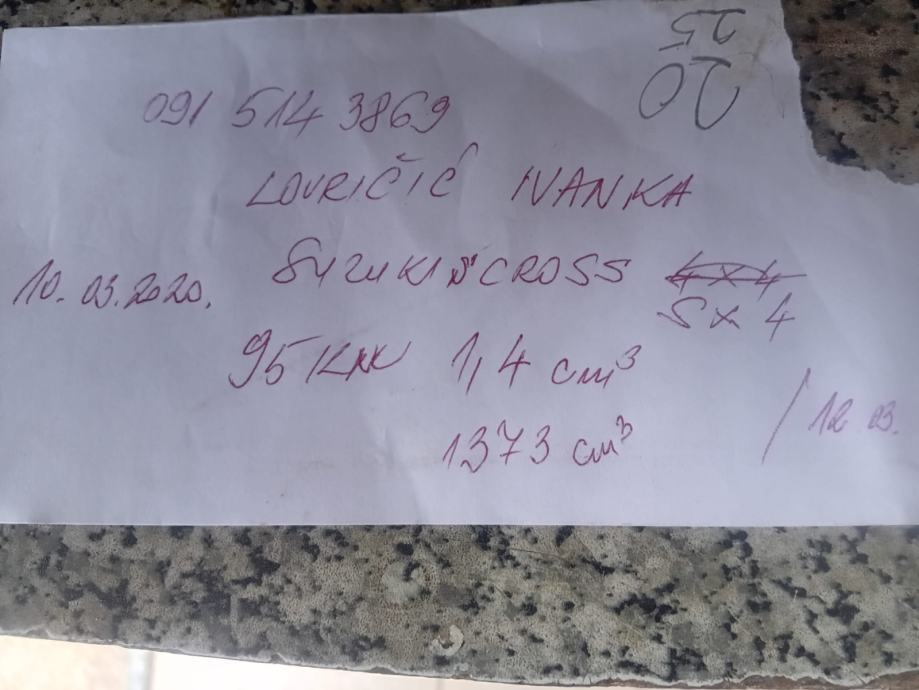 25
20
091 514 3869
LOVRIČIĆ IVANKA
10.03.2020. SUZUKI S CROSS 4x4
SX4
95 KW 1,4 cm³
/ 12 03.
1373 cm³